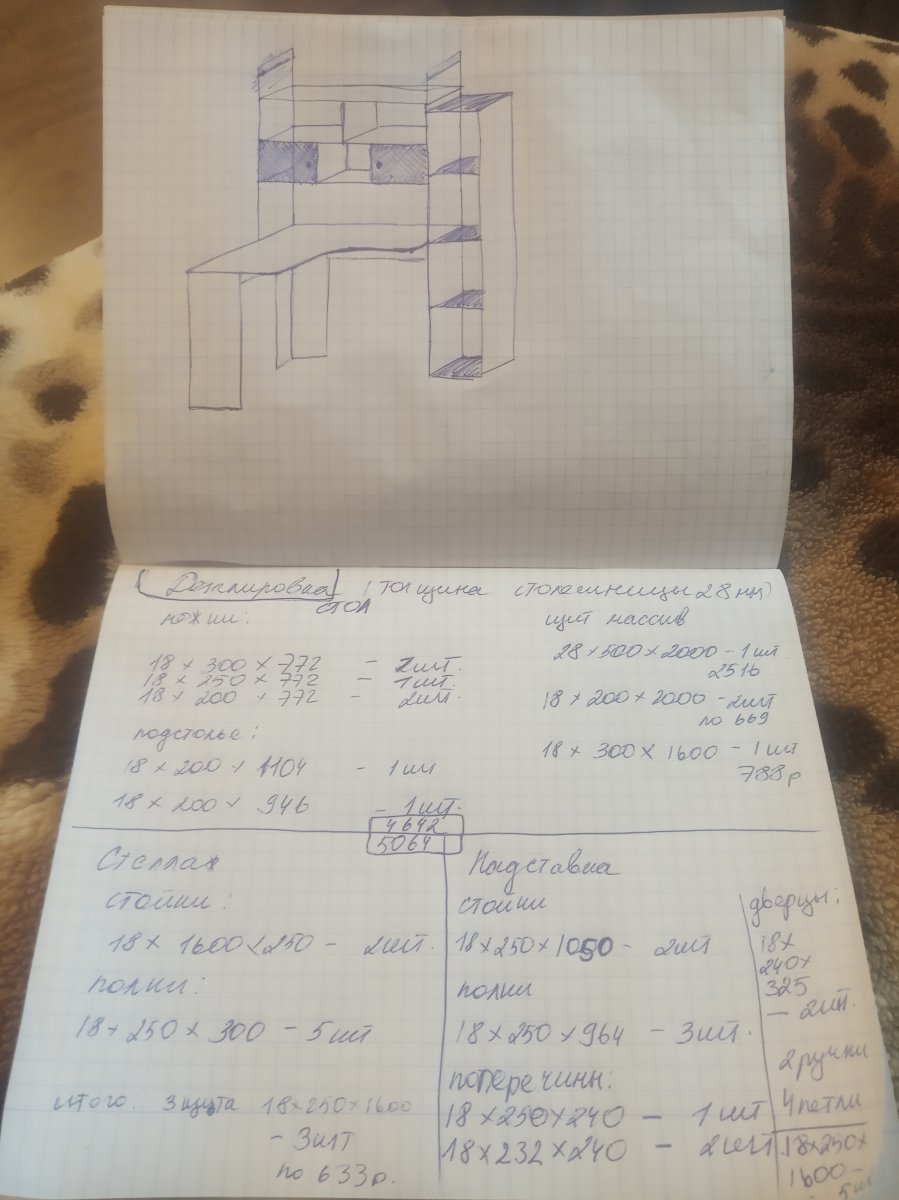 Деталировка (толщина столешницы 28 мм)
стол
ножки:
18 × 300 × 772 - 2шт.
18 × 250 × 772 - 1шт.
18 × 200 × 772 - 2шт.
подстолье:
18 × 200 × 1104 - 1 шт
18 × 200 × 946 - 1шт.
щит массив
28 × 500 × 2000 - 1 шт.
2516
18 × 200 × 2000 - 2шт
по 669
18 × 300 × 1600 - 1 шт
788 р
4642
5064
Стеллаж
стойки:
18 × 1600 × 250 - 2шт.
полки:
18 × 250 × 300 - 5 шт
итого: 3 щита 18×250×1600
- 3шт
по 633р.
Надставка
стойки
18×250×1050 - 2шт
полки
18 × 250 × 964 - 3шт.
поперечины:
18×250×240 - 1 шт
18 × 232 × 240 - 2шт
дверцы:
18×
240×
325
- 2шт.
2 ручки
4 петли
18×250×
1600 -
5шт